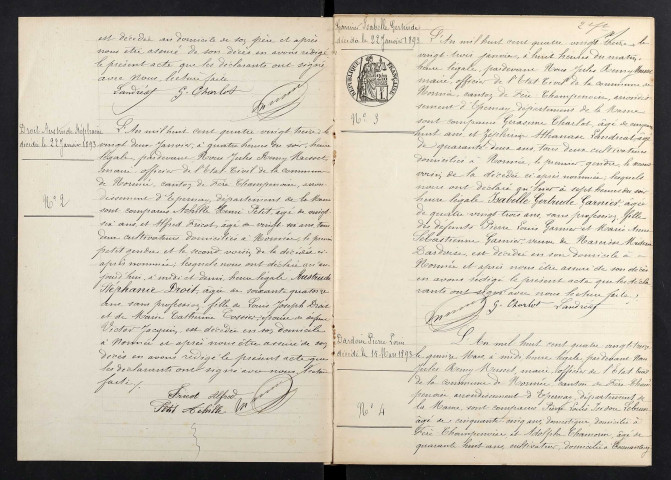 est décédée en domicile de son père et après
nous être assuré de son décès en avons rédigé
le présent acte que les déclarants ont signé
avec nous lecture faite
Landréat G. Charlot
Droit Justinde Stéphanie
décédée le 22 Janvier 1893
N° 2
L'An mil huit cent quatre vingt treize le
vingt deux Janvier, à quatre heures du soir, heure
légale, pardevant Nous Jules Henry Masset
maire officier de l'Etat Civil de la commune
de Normée, canton de Fère Champenoise, arron-
dissement d'Epernay, département de la Marne
sont comparus Achille Henri Petit, âgé de vingt
six ans et Alfred Prucot, âgé de vingt six ans tous
deux cultivateurs domiciliés à Normée, le premier
petit gendre et le second voisin de la décédée ci-
après nommée, lesquels nous ont déclaré qu'au-
jourd'hui à midi et demi, heure légale, Justinde
Stéphanie Droit, âgée de soixante quatorze
ans sans profession, fille de Louis Joseph Droit
et de Marie Catherine, épouse de
Victor Jacquin, est décédée en son domicile
à Normée et après nous être assuré de son
décès en avons rédigé le présent acte que
les déclarants ont signé avec nous, lecture
faite.
Prucot Alfred
Petit Achille
Garnier Isabelle Gertrude
décédée le 22 Janvier 1893
N° 3
REPUBLIQUE FRANÇAISE
L'An mil huit cent quatre vingt treize le
vingt trois janvier, à huit heures du matin,
heure légale, pardevant Nous Jules Henry Masset
maire, officier de l'Etat Civil de la commune de
Normée, canton de Fère Champenoise, arrondis-
sement d'Epernay, département de la Marne
sont comparus Charlot, âgé de
ans et Athanase Landréat, âgé
de quarante deux ans, tous deux cultivateurs
domiciliés à Normée, le premier gendre, le second
voisin de la décédée ci après nommée, lesquels
nous ont déclaré qu'hier à sept heures du soir
heure légale Isabelle Gertrude Garnier, âgée
de quatre vingt trois ans, sans profession, fille
des défunts Pierre Louis Garnier et Marie Anne
Sébastienne Garnier, veuve de
est décédée en son domicile à
Normée et après nous être assuré de son décès
en avons rédigé le présent acte que les décla-
rants ont signé avec nous lecture faite.
G. Charlot Landréat
Pierre
décédé le 15 Mars 1893
N° 4
L'An mil huit cent quatre vingt treize
le quinze Mars à midi heure légale, pardevant Nous
Jules Henry Masset, maire, officier de l'Etat Civil
de la commune de Normée, canton de Fère Cham-
penoise, arrondissement d'Epernay, département de
la Marne, sont comparus
âgé de cinquante cinq ans, domestique, domicilié à
Fère Champenoise et Adolphe, âgé de
quarante huit ans, cultivateur, domicilié à